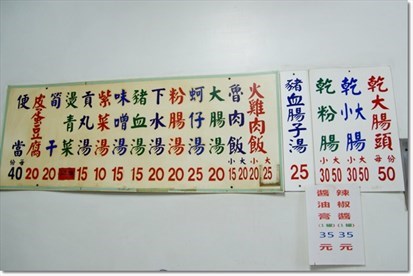 乾大腸頭 每份 50
乾小大腸 大小 50 30
乾粉腸 大小 50 30
豬血腸子湯 25
辣椒醬 35元
醬油膏 35元
火雞肉飯 大小 25 20
魯肉飯 大小 20 15
大腸湯 20
蚵仔湯 20
粉腸湯 20
下水湯 20
豬血湯 15
味噌湯 10
紫菜湯 10
貢丸湯 15
燙青菜
筍干 20
皮蛋豆腐 20
便當 每份 40